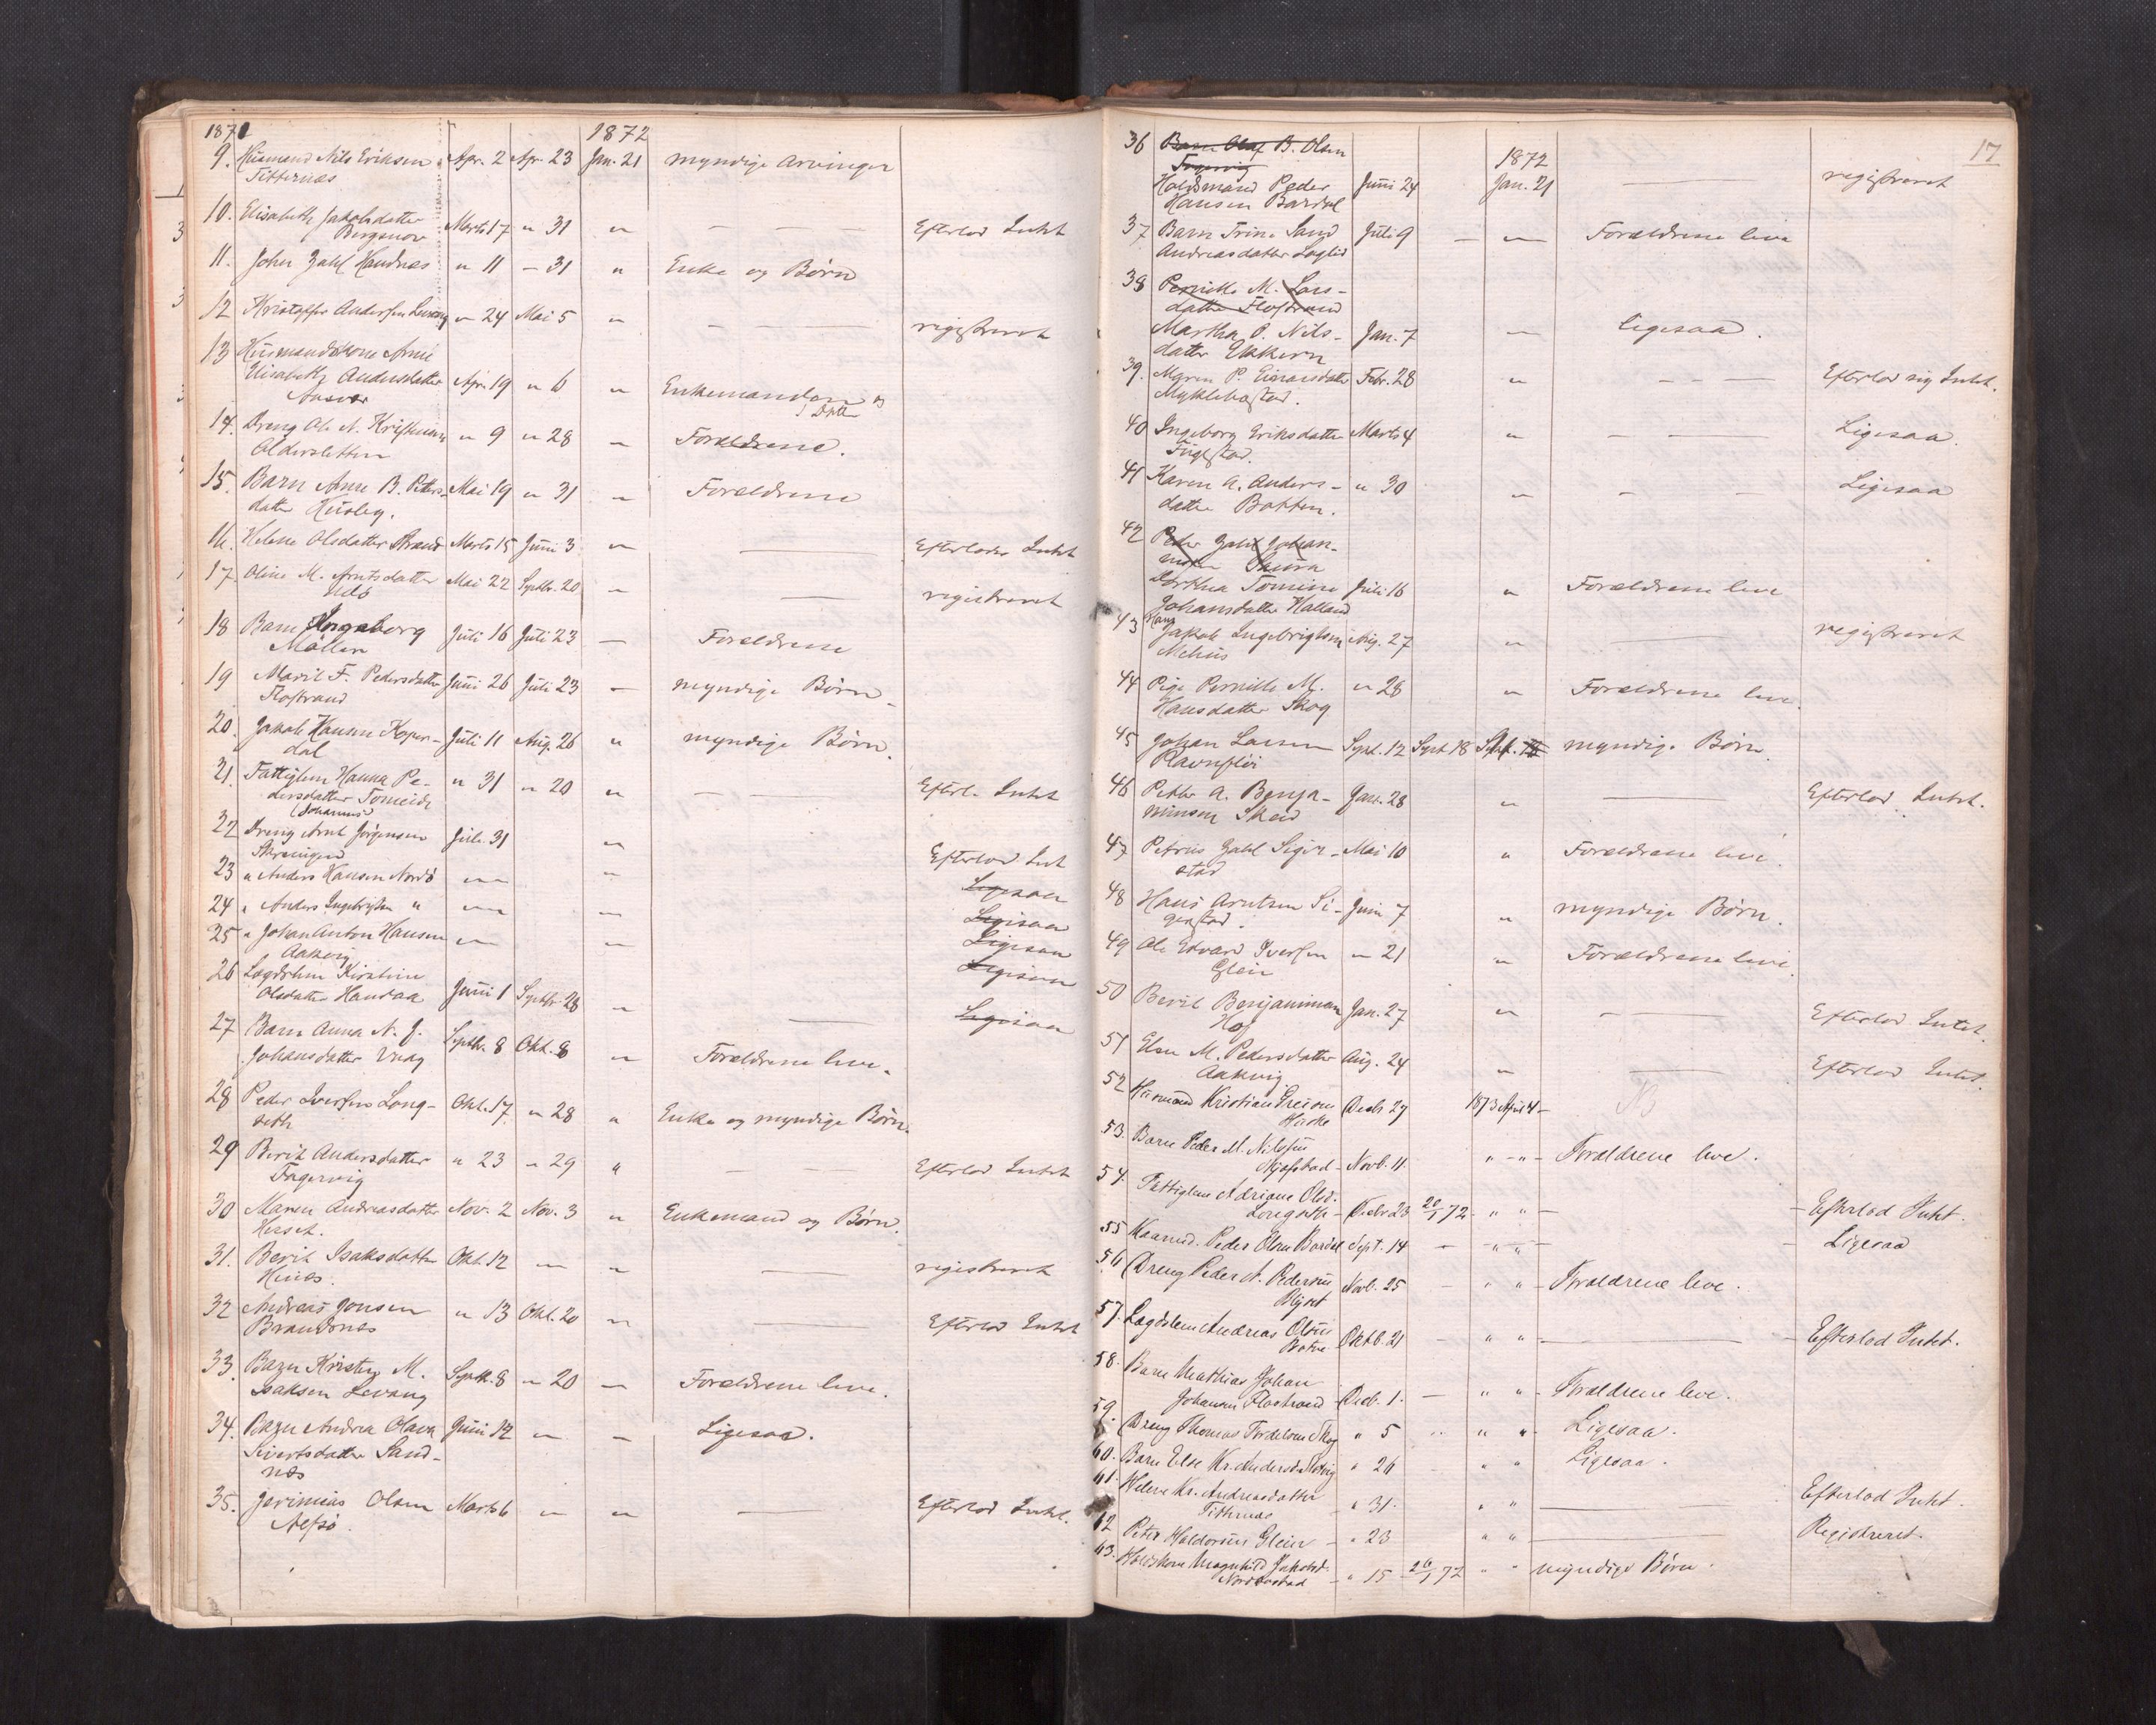 1871 1872
9. Husmand Nils Eriksen Apr. 2 Apr. 23 Jan. 21 myndige Arvinger
Titternæs
10. Elisabeth Jakobsdatter Marts 17 " 31 " — — — Efterlod Intet
Bergsnov
11. John Zahl Handnæs " 11 — 31 " Enke og Børn
12 Kristoffer Andersen Levang " 24 Mai 5 " — — — registreret
13 Husmandskone Anne
Elisabeth Andersdatter Apr. 19 " 6 " Enkemanden og
Aasvær 1 Datter
14. Dreng Ole N. Kristensen " 9 " 28 " Forældrene.
Aldersletten
15. Barn Anne B. Petters- Mai 19 " 31 " Forældrene
datter Husby.
16. Helene Olsdatter Strand Marts 15 Juni 3 " — Efterlader Intet
17. Oline M. Arntsdatter Mai 22 Septbr. 20 " — registreret
Nesø
18 Barn Ingeborg Juli 16 Juli 23 — Forældrene
Møllen
19 Marit F. Pedersdatter Juni 26 Juli 23 — myndige Børn
Flostrand
20. Jakob Hansen Koper- Juli 11 Aug. 26 " myndige Børn.
dal
21. Fattiglem Hanna Pe- " 31 " 20 " — Efterl. Intet
dersdatter Tomeide
(Johannes)
22 Dreng Arnt Jørgensen Juli 31 " Efterlod Int
23 " Anders Hansen Nordø " " Ligesaa
24 " Anders Ingebrigtsen " " " Ligesaa
25 " Johan Anton Hansen " " Ligesaa
Aakvig Ligesaa
26 Lægdslem Kirstine
Olsdatter Handaa Juni 1 Septbr. 28 " — Ligesaa
27 Barn Anna N. J. Septbr. 8 Okt. 8 " Forældrene leve.
Johansdatter Utaag
28 Peder Iversen Long- Okt. 17 " 28 " Enke og myndige Børn.
seth
29 Berit Andersdatter " 23 " 29 " — Efterlod Intet
Fagervig
30 Maren Andreasdatter Nov. 2 Nov. 3 " Enkemand og Børn.
31. Berit Isaksdatter Okt. 12 " " — registreret
32 Andreas Jonsen " 13 Okt. 20 " — Efterlod Intet
Brandsnæs
33. Barn Kristen M. Septbr. 8 " 20 — Forældrene leve.
Isaksen Levang
34. Barn Andrea Olava Juni 12 " — Ligesaa.
Sivertsdatter Sand-
næs
35. Jerimias Olsen Marts 6 " " — Efterlod Intet.
Alfsø.
17
36 Barn Olaf B. Olsen 1872
Fagervig
Holdsmand Peder Juni 24 Jan. 21 — registreret
Hansen Bardal
37 Barn Trine Sand Juli 9 — " Forældrene leve
Andreasdatter Laglid
38 Pernille M. Lars-
datter Flostrand
Martha O. Nils- Jan. 7 " ligesaa.
datter Ekkern
39. Maren P. Einarsdatter Febr. 28 " — — Efterlod sig Intet.
Myklebostad.
40 Ingeborg Eriksdatter Marts 4 " — Ligesaa.
Fuglstad.
41 Karen A. Anders- " 30 " — — Ligesaa
datter Botten.
42 Peder Zahl Johan-
nesen Saura
Dorthea Tomine Juli 16 " Forældrene leve
Johansdatter Halland
43 Hans
Jakob Ingebrigtsen Aug. 27 " registreret
Mehus
44 Pige Pernille M. " 28 " Forældrene leve.
Hansdatter Skog
45 Johan Larsen Sept. 12 Sept 18 Sept. 18 myndige Børn.
Ravnflei
46 Petter A. Benja- Jan. 28 " — Efterlod Intet.
minsen Skeid
47 Petrus Zahl Siger- Mai 10 " Forældrene leve.
stad
48 Hans Arntsen Si- Juni 7 " myndige Børn.
gerstad.
49 Ole Edvard Iversen " 21 " Forældrene leve.
Glein
50 Berit Benjaminsen Jan. 27 " — Efterlod Intet.
Hof
51 Elen M. Pedersdatter Aug. 24 " — Efterlod Intet.
Aakvig
52 Husmand Kristian Decbr 27 1873 April 4 — NB
53. Barn Peder M. Nilsen
— Novb. 11. " " — Forældrene leve.
54. Fattiglem Adriane Olsd.
Longseth — Decbr 23 20/1 72 " " — — Efterlod Intet.
55 Kaarmd. Peder Olsen Bardal Sept. 14 — " " — Ligesaa
56 Dreng Peder A. Pedersen Novb. 25 — " " — Forældrene leve.
57. Lægdslem Andreas Olsen Oktb. 21 — " " — Efterlod Intet.
58. Barn Mathias Johan
Johansen Flostrand — Decb. 1. — " " — Forældrene leve.
59. Dreng Thomas Tordelsen Skog " 5 " " — Ligesaa.
60. Barn Else Kr. Andersd. " 26 " " Ligesaa.
61. Helene Kr. Andreasdatter
Titternæs — " 31. " " — Efterlod Intet.
62 Peter Haldorsen Glein — " 23 " " — Registreret.
63. Holdskone Magnhild Jakobsd.
Nordbostad — " 15 26/1 72 " " myndige Børn.